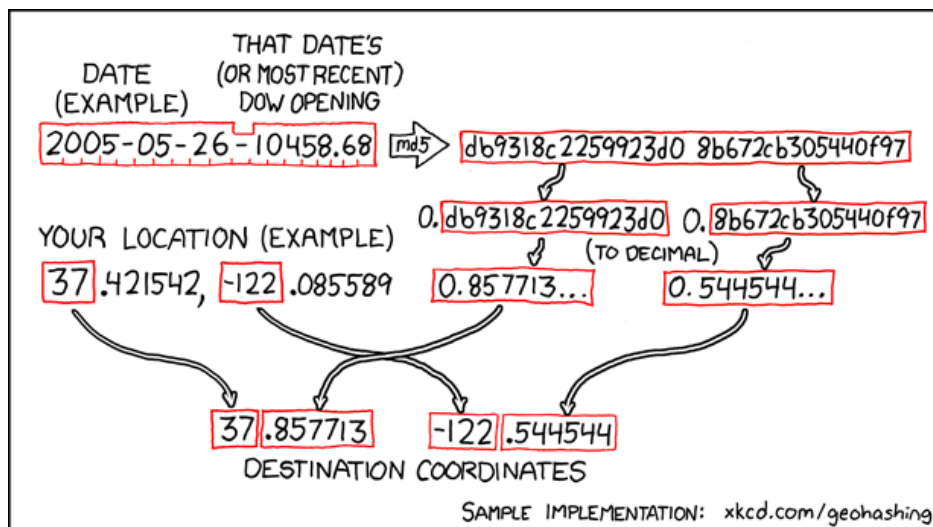 DATE
(EXAMPLE)
THAT DATE'S
(OR MOST RECENT)
DOW OPENING
2005-05-26-10458.68
md5
db9318c2259923d0 8b672cb305440f97
0.db9318c2259923d0
0.8b672cb305440f97
(TO DECIMAL)
YOUR LOCATION (EXAMPLE)
37.421542, -122.085589
0.857713...
0.544544...
37.857713
-122.544544
DESTINATION COORDINATES
SAMPLE IMPLEMENTATION: xkcd.com/geohashing